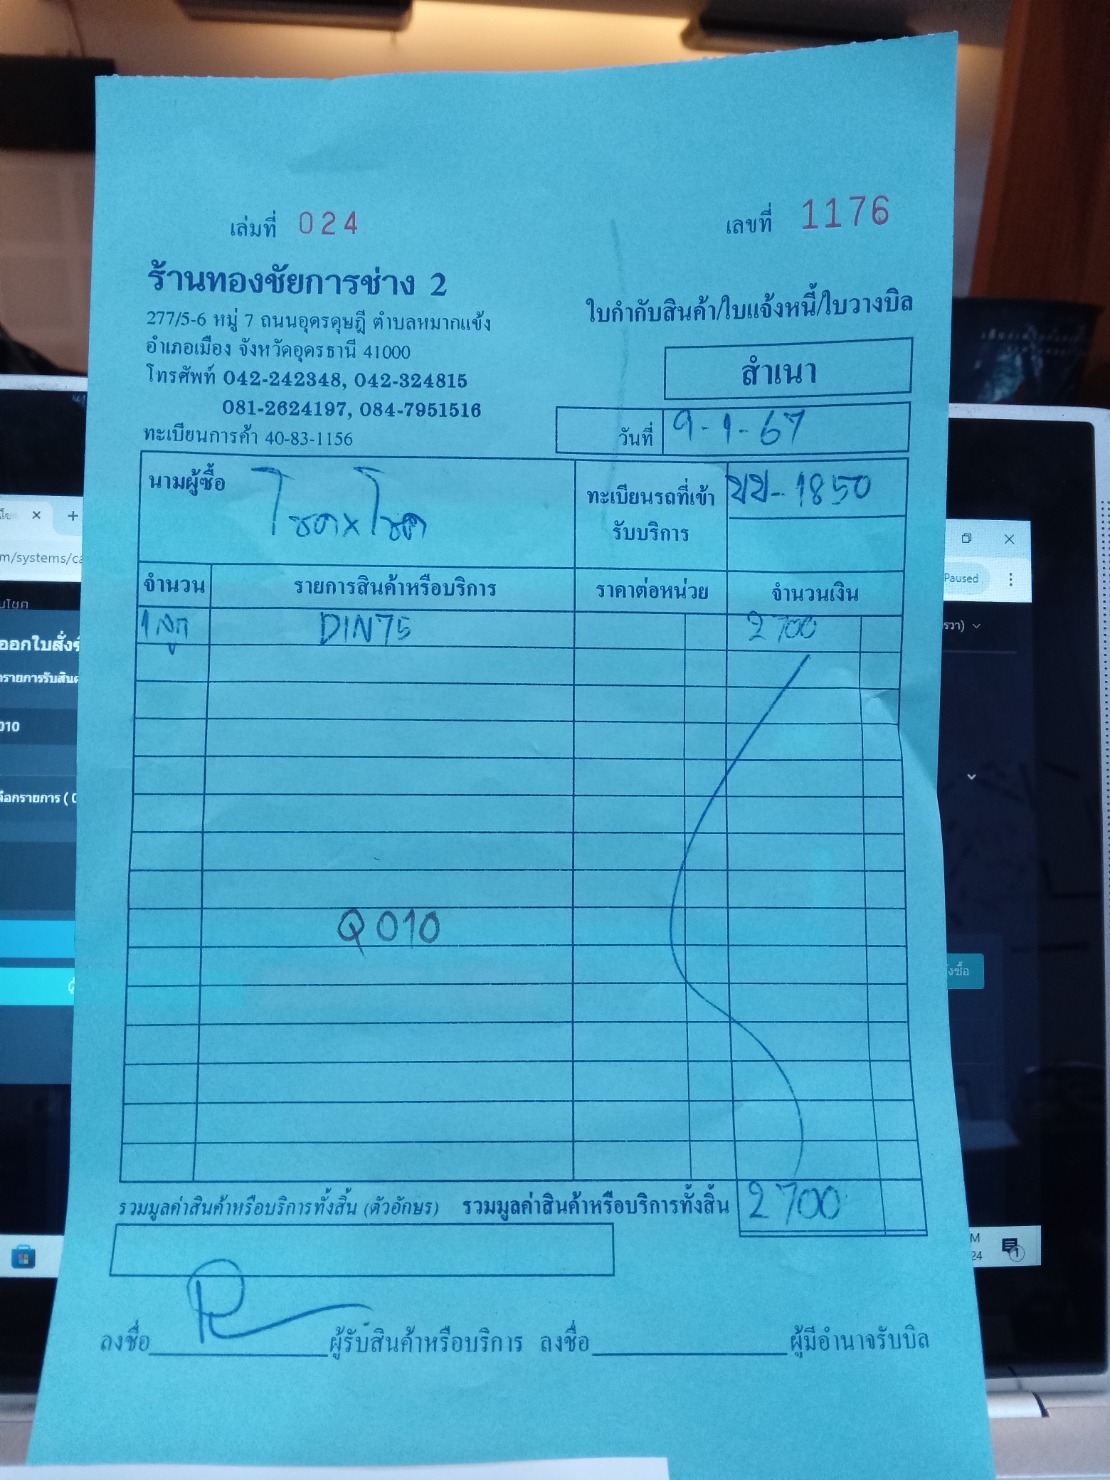 เล่มที่ 024
เลขที่ 1176
ร้านทองชัยการช่าง 2
277/5-6 หมู่ 7 ถนนอุดรดุษฎี ตำบลหมากแข้ง
อำเภอเมือง จังหวัดอุดรธานี 41000
โทรศัพท์ 042-242348, 042-324815
081-2624197, 084-7951516
ทะเบียนการค้า 40-83-1156
ใบกำกับสินค้า/ใบแจ้งหนี้/ใบวางบิล
สำเนา
วันที่ 9-1-67
นามผู้ซื้อ โชคxโชค
ทะเบียนรถที่เข้า ขข-1850
รับบริการ
จำนวน รายการสินค้าหรือบริการ ราคาต่อหน่วย จำนวนเงิน
1 ลูก DIN75 2700
Q010
รวมมูลค่าสินค้าหรือบริการทั้งสิ้น (ตัวอักษร) รวมมูลค่าสินค้าหรือบริการทั้งสิ้น 2700
ลงชื่อ ผู้รับสินค้าหรือบริการ ลงชื่อ ผู้มีอำนาจรับบิล
m/systems/ca
Paused
010
24